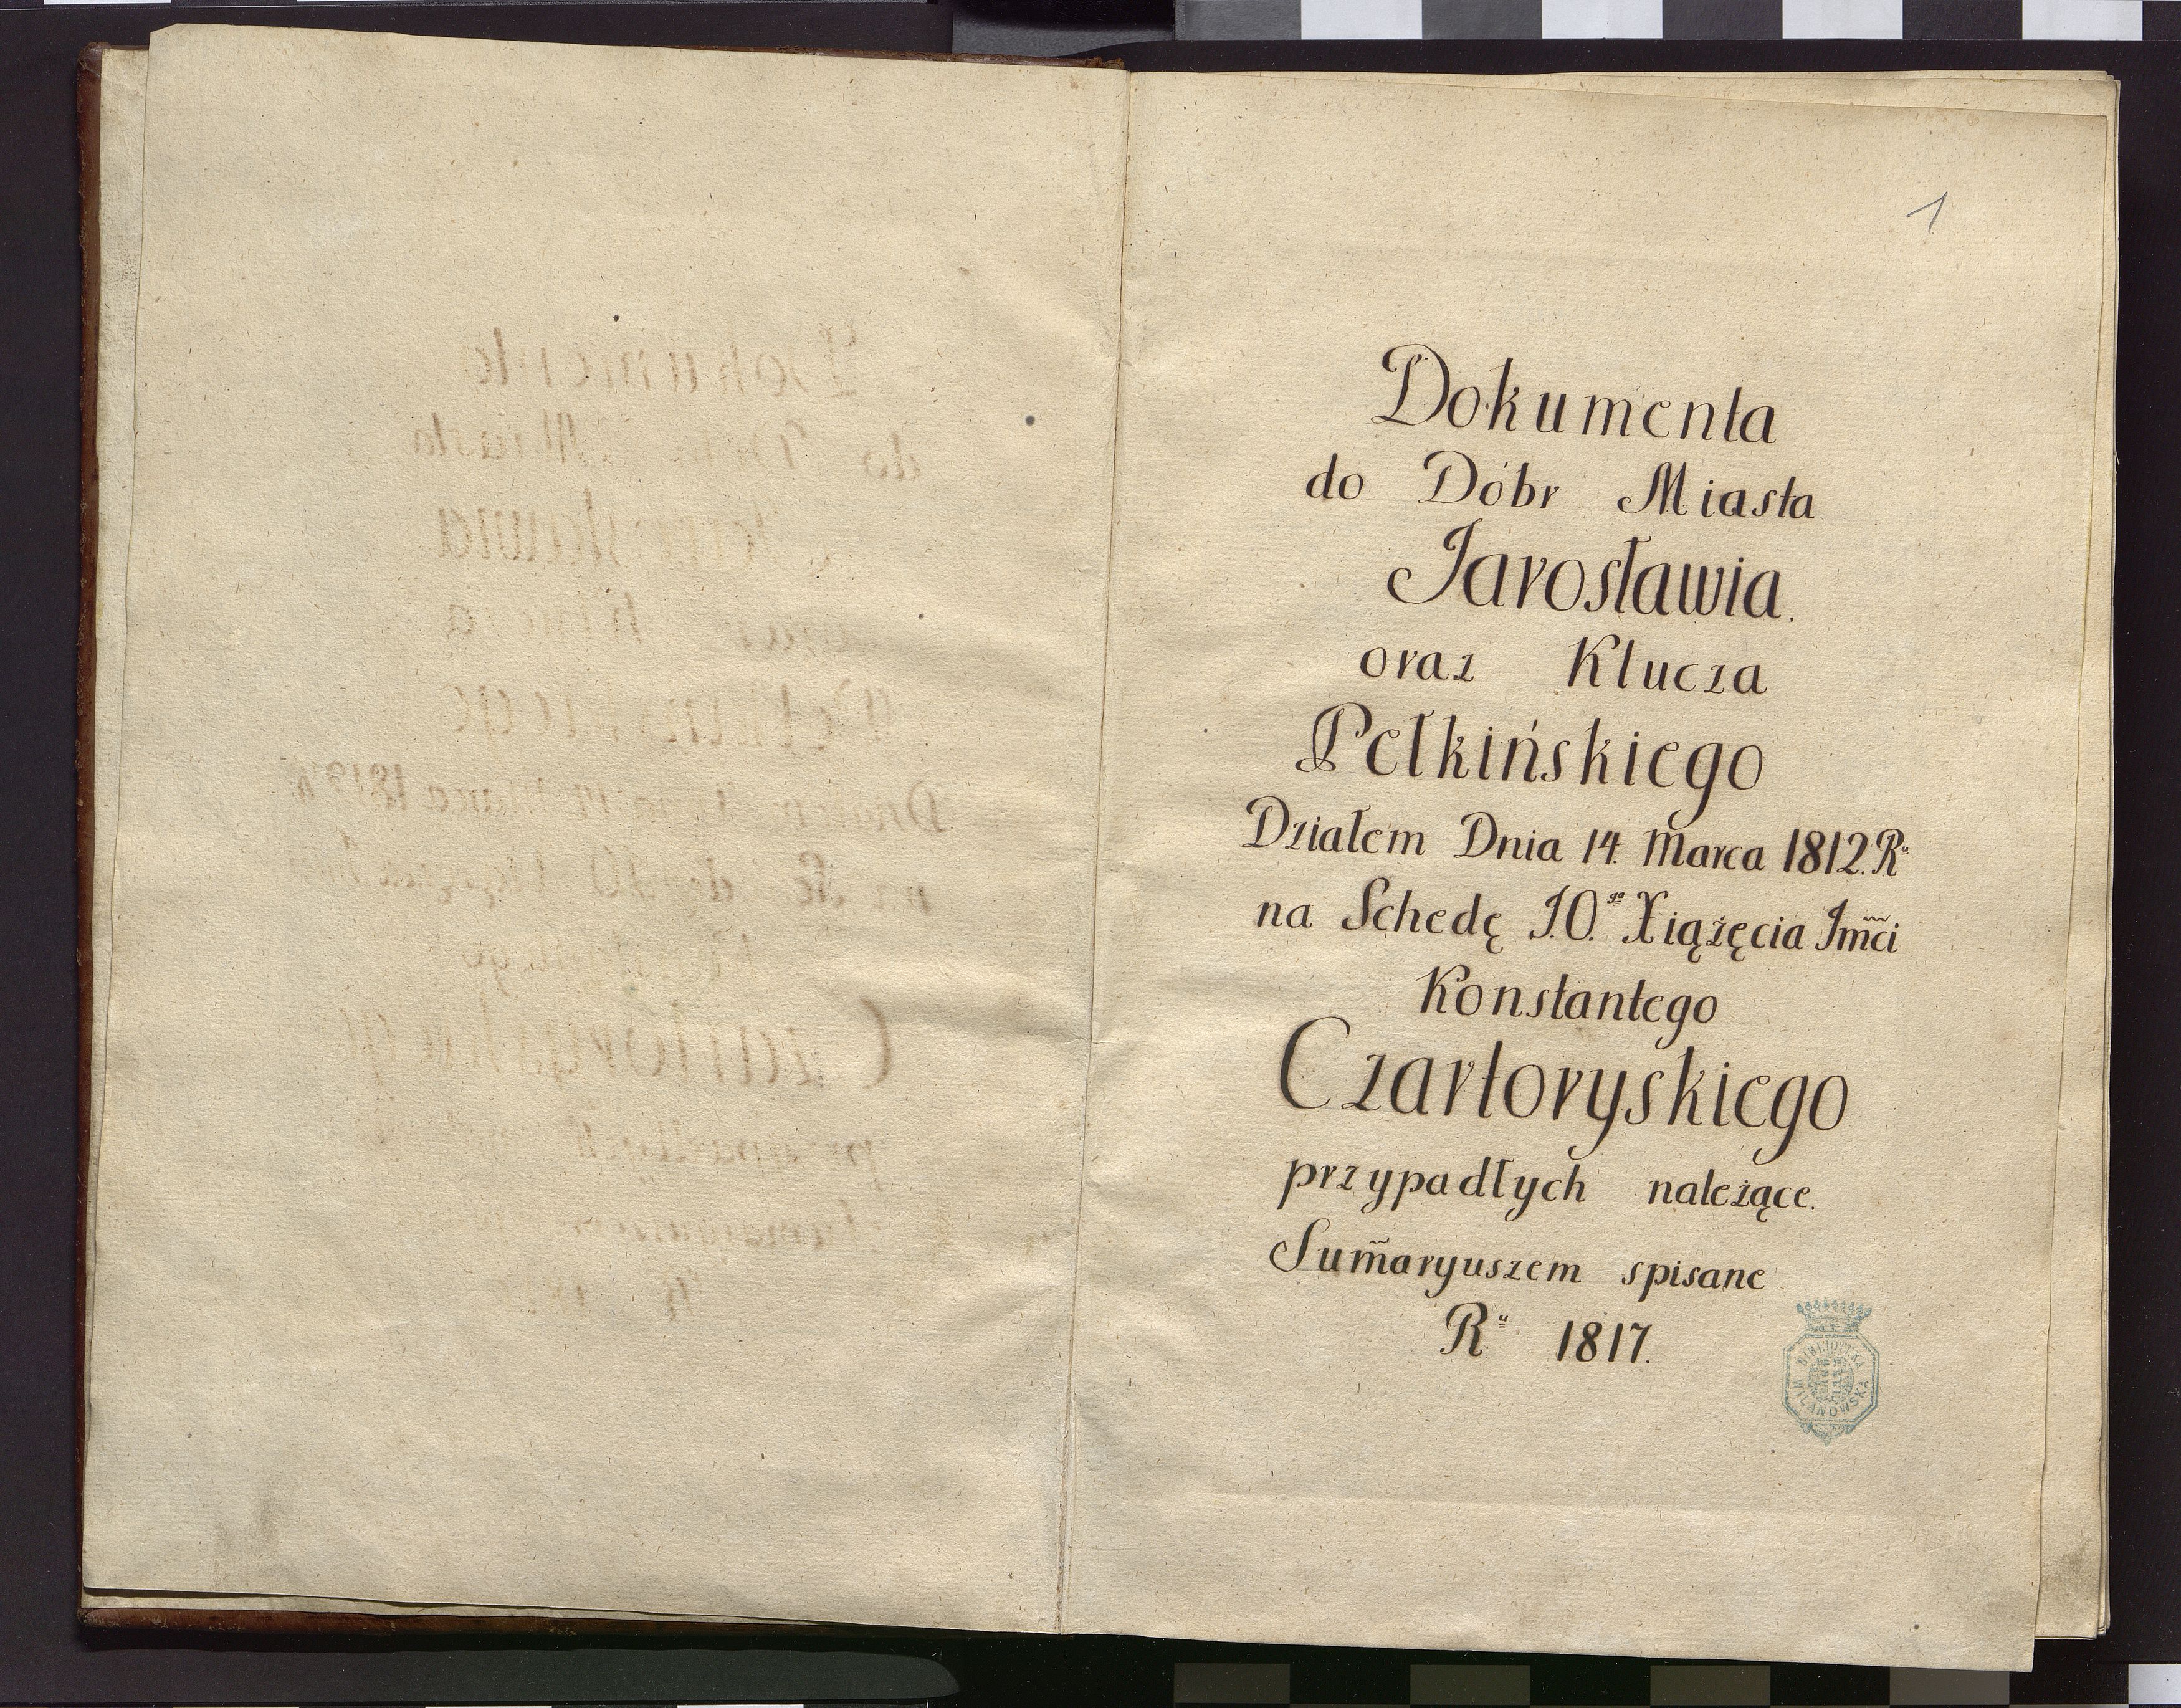 1
Dokumenta
do Dóbr Miasta
Jarosławia.
oraz Klucza
Pełkińskiego
Działem Dnia 14. Marca 1812. Rᵘ
na Schedę J.O.ᵍᵒ Xiążęcia Jm̃ci
Konstantego
Czartoryskiego
przypadłych należące.
Sum̃aryuszem spisane
Rᵘ 1817.
BIBLIOTEKA
WILANOWSKA